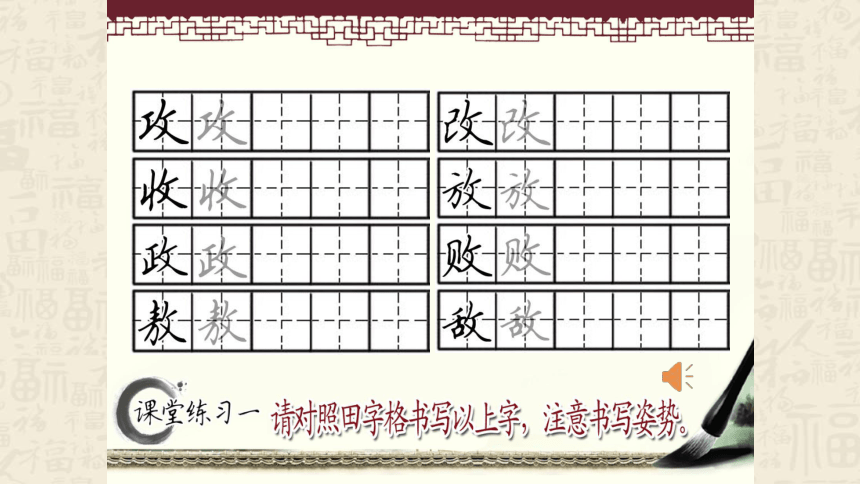 攻攻 改改
收收 放放
政政 败败
敖敖 敌敌
课堂练习一 请对照田字格书写以上字，注意书写姿势。